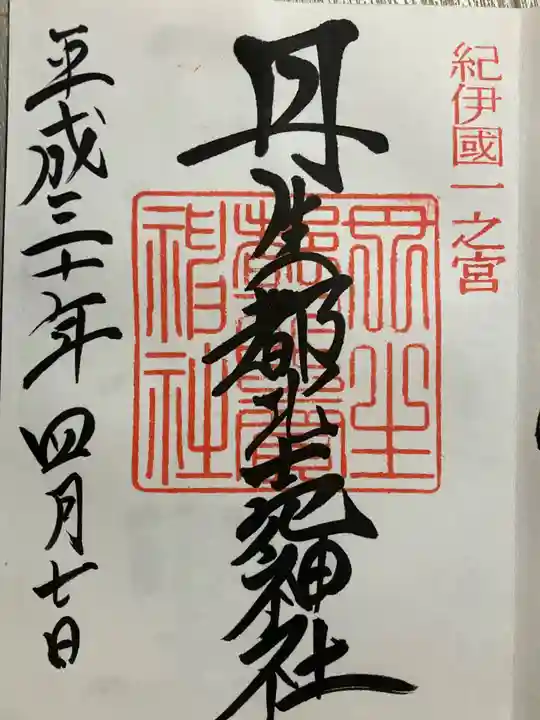 紀伊國一之宮
丹生都比売神社
丹生都比賣神社
平成三十年四月七日